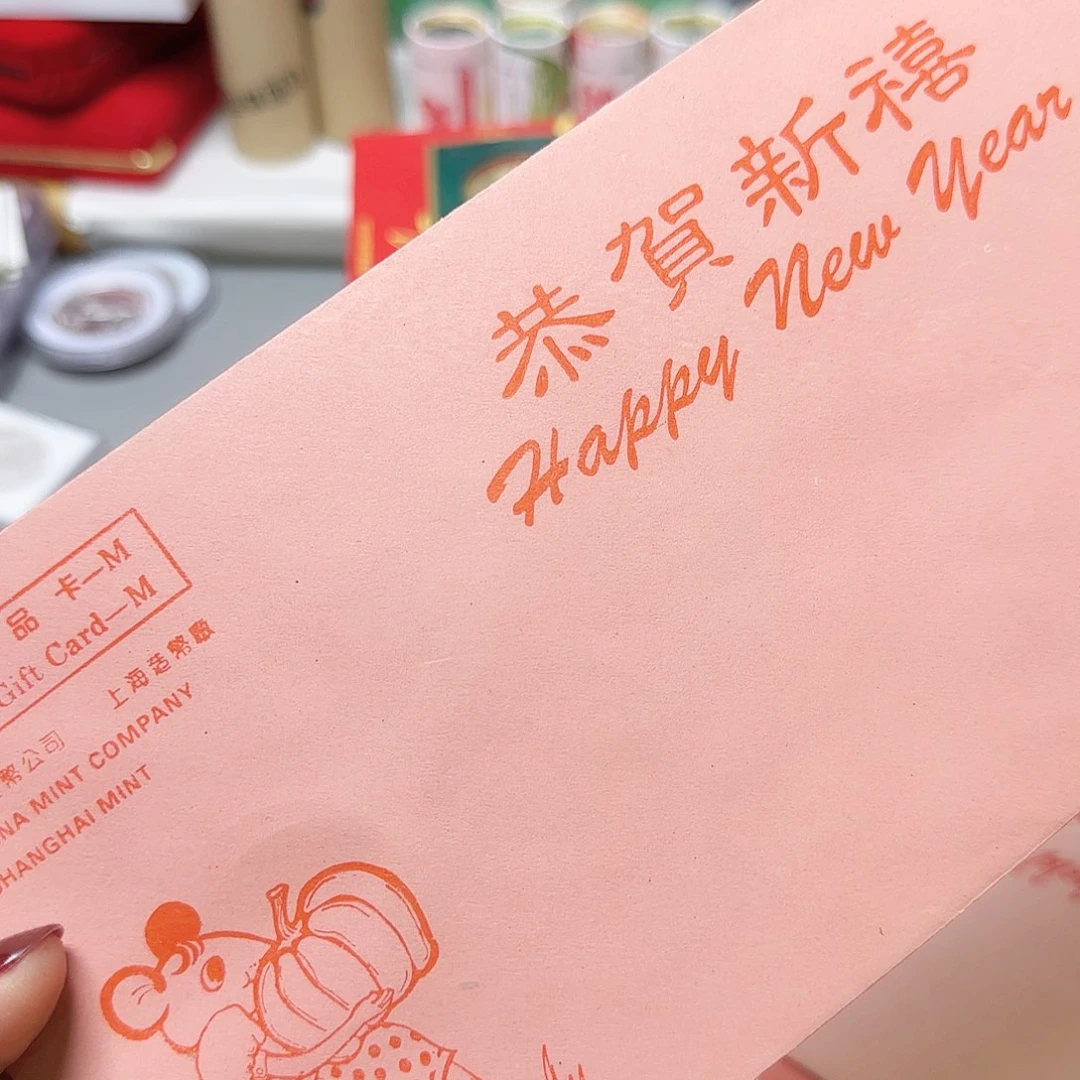 恭賀新禧
Happy New Year
品 卡—M
Gift Card—M
上海造幣廠
幣公司
NA MINT COMPANY
SHANGHAI MINT